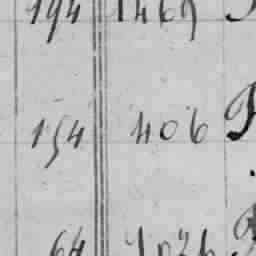 194 1469
154 406
64 1026